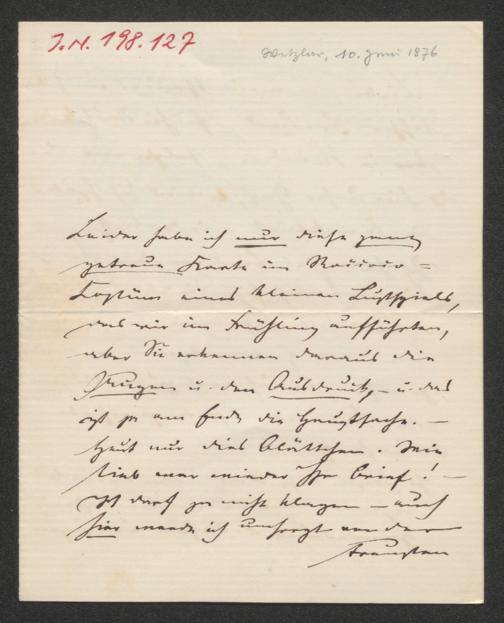 I.N. 198.127
Wetzlar, 10. Juni 1876
Leider habe ich nur diese ganz
getreue Karte im Rococo=
Kostüm eines kleinen Lustspiels,
das wir im Frühling aufführten,
aber Sie erkennen daraus die
Augen u. den Ausdruck, – u. das
ist ja am Ende die Hauptsache. –
Heut nur dies Blättchen. Wie
lieb war wieder Ihr Brief! –
Ich darf ja nicht klagen – auch
hier werde ich umsorgt von den